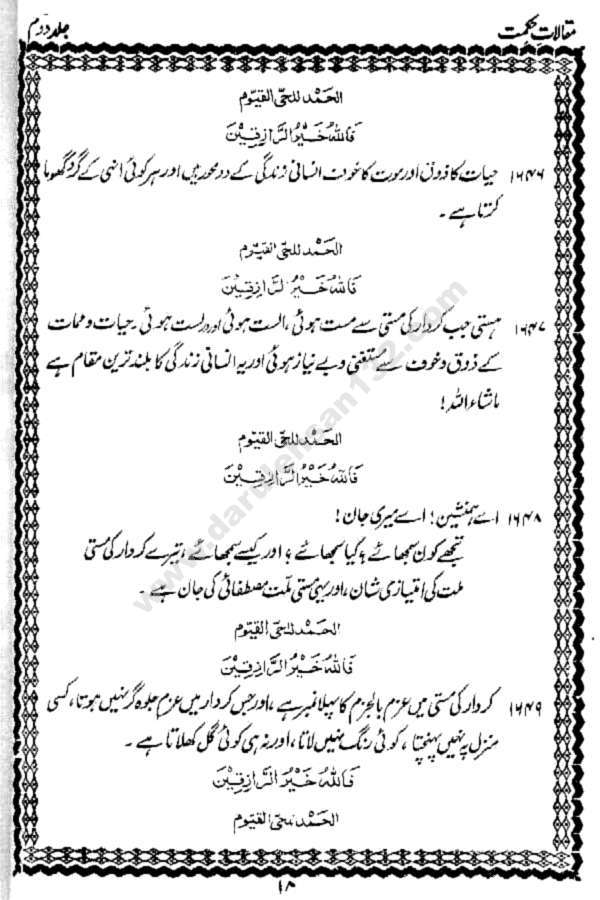 مقالاتِ حکمت
جلد دوم
الحَمْد للحیّ القیّوم
فَاللهُ خَيْرُ الرَّازِقِيْنَ
۱۶۴۶ حیات کا ذوق اور موت کا خوف انسانی زندگی کے دو محور ہیں اور ہر کوئی انہی کے گرد گھوما
کرتا ہے ۔
الحَمْد للحیّ القیّوم
فَاللهُ خَيْرُ الرَّازِقِيْنَ
۱۶۴۷ ہستی جب کردار کی مستی سے مست ہوئی ، الست ہوئی اور الست ہوئی ۔ حیات و ممات
کے ذوق و خوف سے مستغنی و بے نیاز ہوئی اور یہ انسانی زندگی کا بلند ترین مقام ہے
ماشاء اللہ !
الحَمْد للحیّ القیّوم
فَاللهُ خَيْرُ الرَّازِقِيْنَ
۱۶۴۸ اے ہمنشین ! اے میری جان !
تجھے کون سمجھائے ؟ کیا سمجھائے ؟ اور کیسے سمجھائے ، تیرے کردار کی مستی
ملت کی امتیازی شان ، اور یہی مستی ملّت مصطفائی کی جان ہے ۔
الحَمْد للحیّ القیّوم
فَاللهُ خَيْرُ الرَّازِقِيْنَ
۱۶۴۹ کردار کی مستی میں عزم بالجزم کا پہلا نمبر ہے ، اور جس کردار میں عزم جلوہ گر نہیں ہوتا ، کسی
منزل پہ نہیں پہنچتا ، کوئی رنگ نہیں لاتا ، اور نہ ہی کوئی گل کھلاتا ہے ۔
فَاللهُ خَيْرُ الرَّازِقِيْنَ
الحَمْد للحیّ القیّوم
۱۸
www.darulehsan132.com